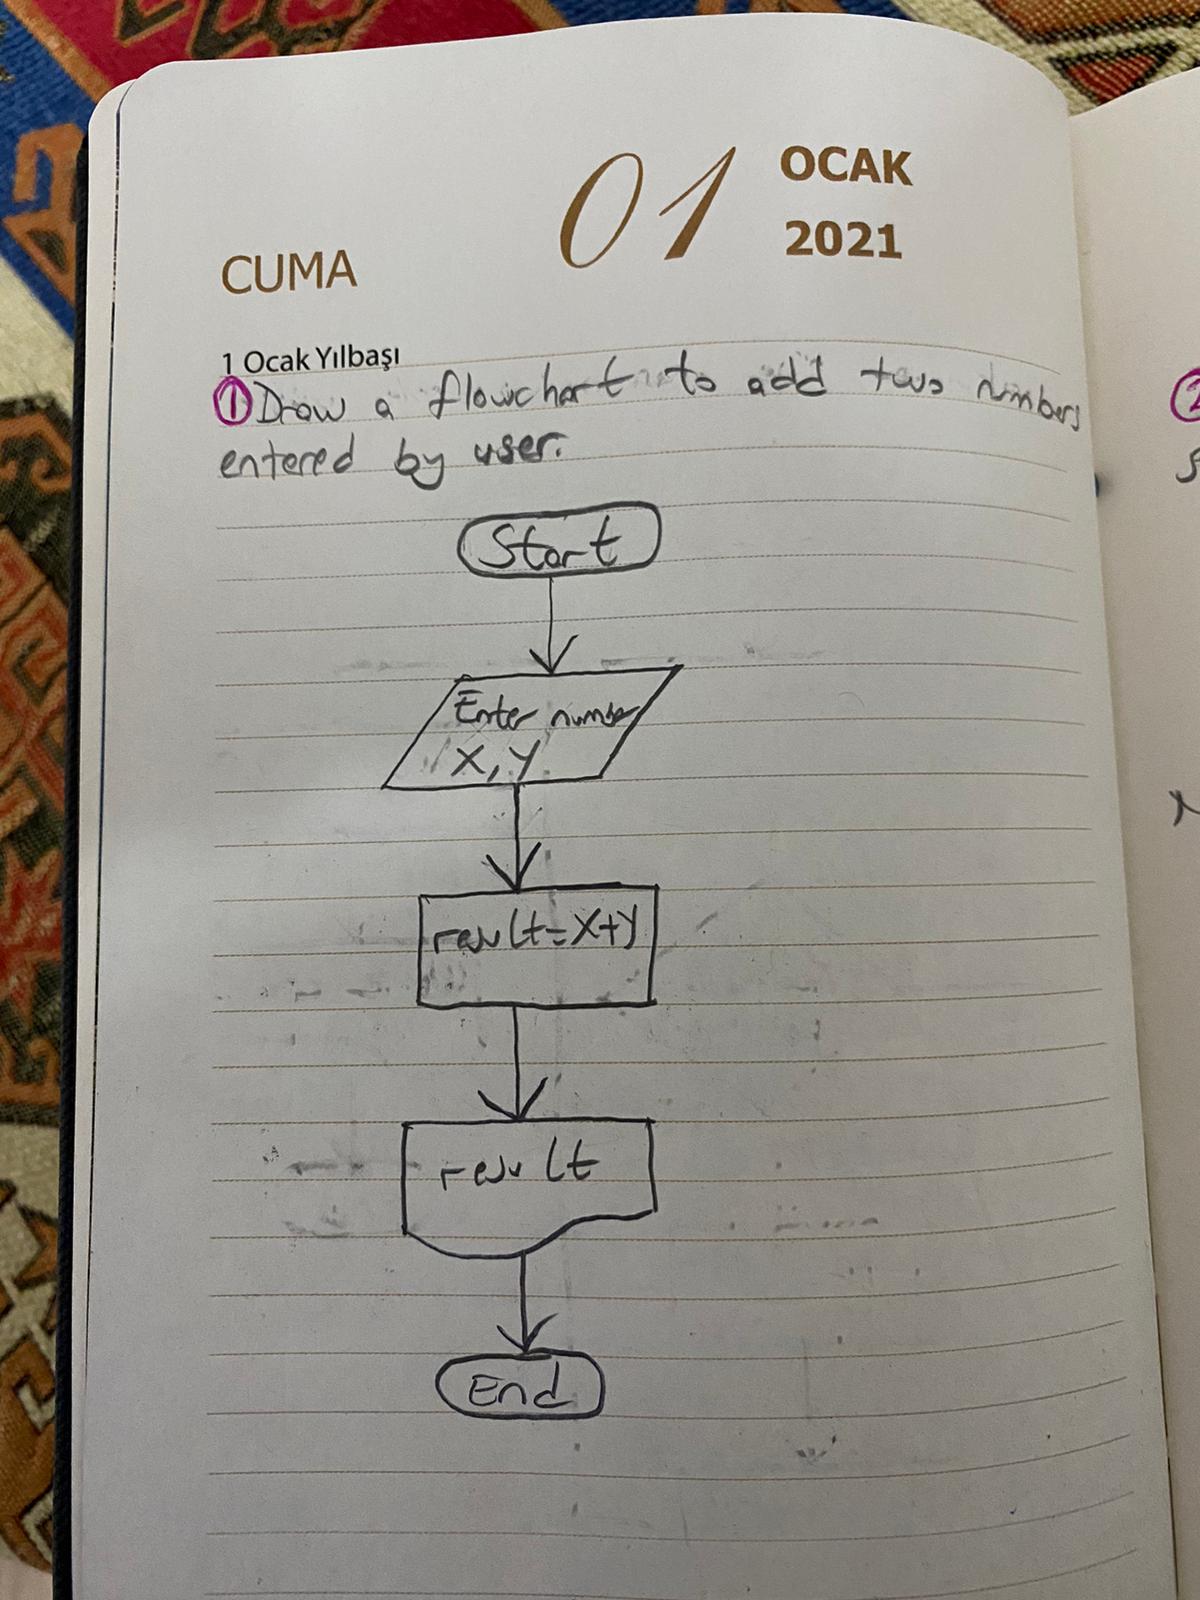 01
OCAK
2021
CUMA
1 Ocak Yılbaşı
① Draw a flowchart to add two numbers
entered by user.
Start
Enter number
X, Y
result=X+Y
result
End